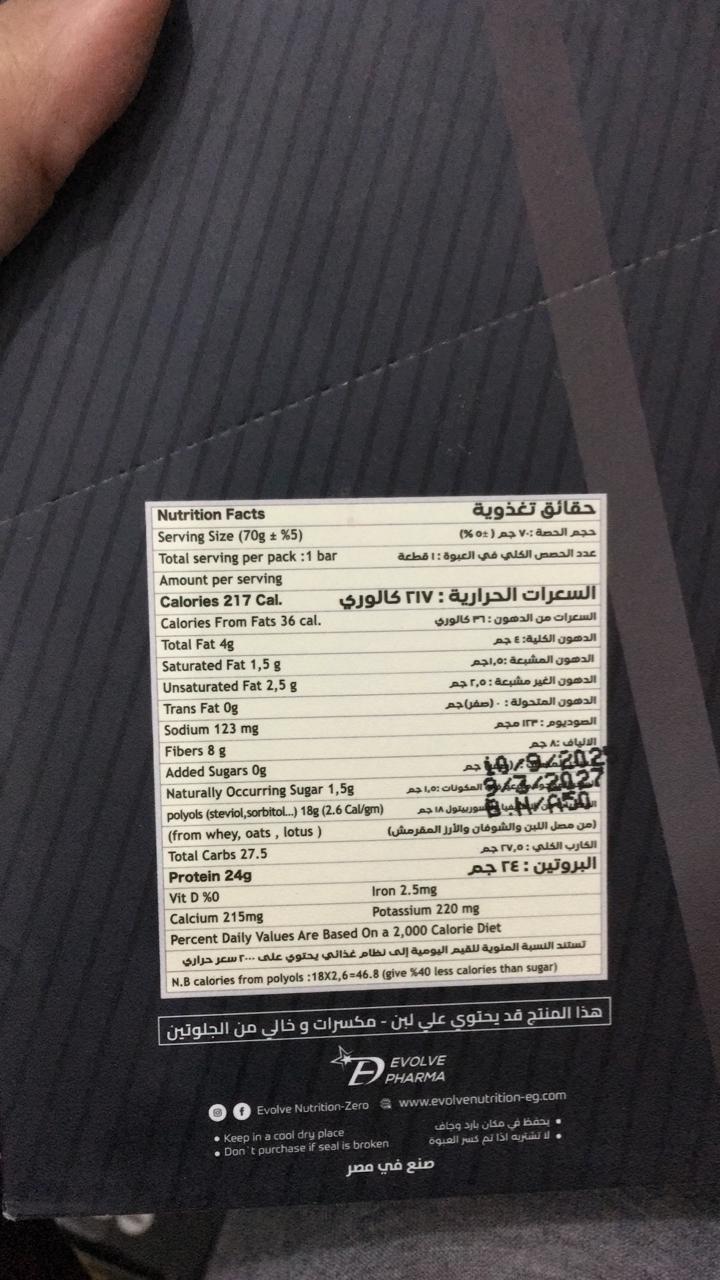 Nutrition Facts حقائق تغذوية
Serving Size (70g ± %5) حجم الحصة :٧٠ جم (±٥ %)
Total serving per pack :1 bar عدد الحصص الكلي في العبوة :١ قطعة
Amount per serving
Calories 217 Cal. السعرات الحرارية : ٢١٧ كالوري
Calories From Fats 36 cal. السعرات من الدهون : ٣٦ كالوري
Total Fat 4g الدهون الكلية: ٤ جم
Saturated Fat 1,5 g الدهون المشبعة :١,٥جم
Unsaturated Fat 2,5 g الدهون الغير مشبعة : ٢,٥ جم
Trans Fat 0g الدهون المتحولة : ٠ (صفر)جم
Sodium 123 mg الصوديوم : ١٢٣ مجم
Fibers 8 g الالياف :٨ جم
Added Sugars 0g جم
10/9/202
Naturally Occurring Sugar 1,5g المكونات :١,٥ جم
9/3/2027
polyols (steviol,sorbitol...) 18g (2.6 Cal/gm) سوربيتول ١٨ جم
B.N/A50
(from whey, oats , lotus ) (من مصل اللبن والشوفان والأرز المقرمش)
Total Carbs 27.5 الكارب الكلي : ٢٧,٥ جم
Protein 24g البروتين : ٢٤ جم
Vit D %0 Iron 2.5mg
Calcium 215mg Potassium 220 mg
Percent Daily Values Are Based On a 2,000 Calorie Diet
تستند النسبة المئوية للقيم اليومية إلى نظام غذائي يحتوي على ٢٠٠٠ سعر حراري
N.B calories from polyols :18X2,6=46.8 (give %40 less calories than sugar)
هذا المنتج قد يحتوي علي لبن - مكسرات و خالي من الجلوتين
EVOLVE
PHARMA
Evolve Nutrition-Zero www.evolvenutrition-eg.com
• Keep in a cool dry place • يحفظ في مكان بارد وجاف
• Don`t purchase if seal is broken • لا تشتريه اذا تم كسر العبوة
صنع في مصر